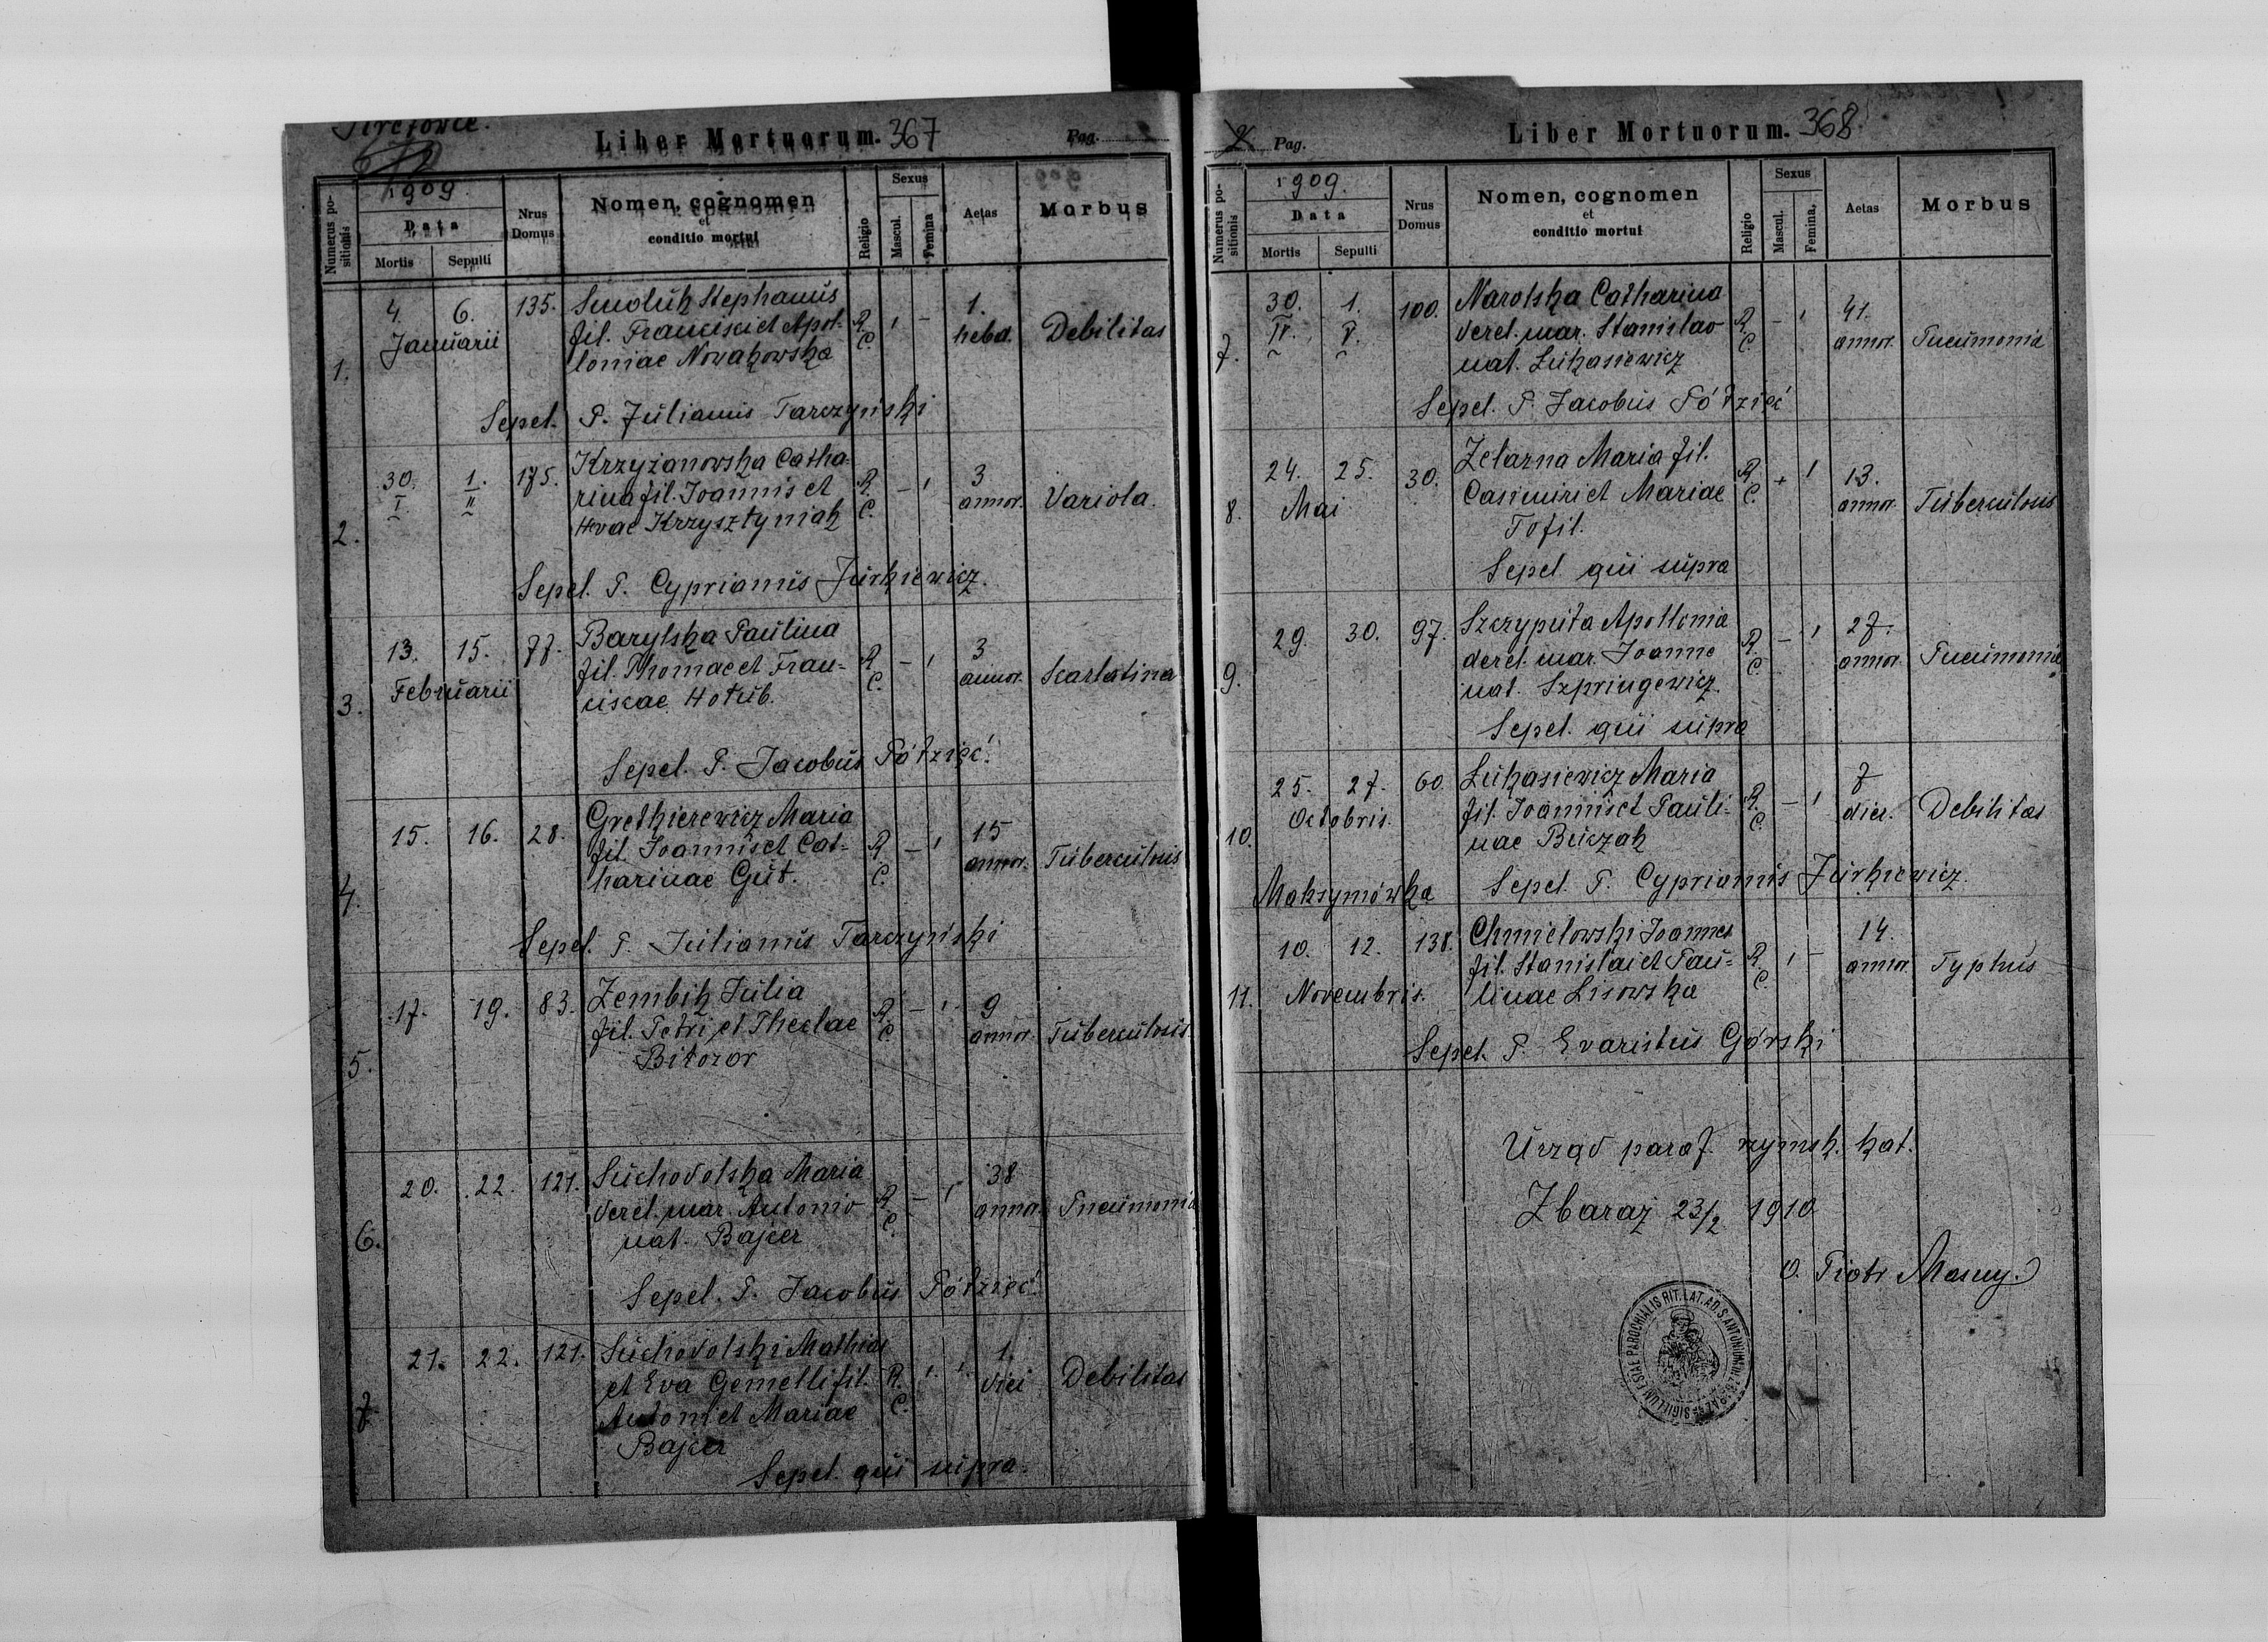 Liber Mortuorum. 367
Pag.
Numerus positionis
1909.
Data
Mortis
Sepulti
Nrus Domus
Nomen, cognomen
et
conditio mortui
Religio
Sexus
Mascul.
Femina
Aetas
Morbus
1.
4. 6. 135. Smoluk Stephanus
Januarii
fil. Francisci et Apol-
loniae Nowakowska
R. C.
1. hebd.
Debilitas
Sepel. P. Julianus Tarczyński
2.
30. I. 1. II. 175. Krzyżanowska Catha-
rina fil. Joannis et
Evae Krzysztyniak
R. C.
3 annor.
Variola.
Sepel. P. Cyprianus Jurkiewicz.
3.
13. 15. 77. Barylska Paulina
Februarii
fil. Thomae et Fran-
ciscae Hołub.
R. C.
3 annor.
Scarlatina
Sepel. P. Jacobus Półzięć.
4.
15. 16. 28. Gretkierewicz Maria
fil. Joannis et Cat-
harinae Gut.
R. C.
15 annor.
Tuberculosis
Sepel. P. Julianus Tarczyński
5.
17. 19. 83. Zembik Julia
fil. Petri et Theclae
Biłozor
R. C.
9 annor.
Tuberculosis
6.
20. 22. 121. Suchodolska Maria
derel. mar. Antonio
nat. Bajcer
R. C.
38 annor.
Pneumonia
Sepel. P. Jacobus Półzięć.
7
21. 22. 121. Suchodolski Mathias
et Eva Gemelli fil.
Antoni et Mariae
Bajcer
R. C.
1. diei
Debilitas
Sepel. qui supra.
2. Pag.
Liber Mortuorum. 368
Numerus positionis
1909.
Data
Mortis
Sepulti
Nrus Domus
Nomen, cognomen
et
conditio mortui
Religio
Sexus
Mascul.
Femina,
Aetas
Morbus
7.
30. IV. 1. V. 100. Narolska Catharina
derel. mar. Stanislao
nat. Łukasiewicz
R. C.
41. annor.
Pneumonia
Sepel. P. Jacobus Półzięć
8.
24. 25. 30. Żelazna Maria fil.
Mai
Casimiri et Mariae
Tofil.
R. C.
13. annor.
Tuberculosis
Sepel qui supra
9.
29. 30. 97. Szczyputa Apollonia
derel. mar. Joanne
nat. Szpringewicz.
R. C.
27. annor.
Pneumonia
Sepel. qui supra
10.
25. 27. 60 Łukasiewicz Maria
Octobris.
fil. Joannis et Pauli-
nae Buczak
R. C.
7 dier.
Debilitas
Maksymówka
Sepel. P. Cyprianus Jurkiewicz
11.
10. 12. 138. Chmielowski Joannes
Novembris.
fil. Stanislai et Pau-
linae Lisowska
R. C.
14. annor.
Typhus
Sepel. P. Evaristus Górski
Urząd paraf. rzymsk. kat.
Zbaraż 23/2 1910
O. Piotr Masny.